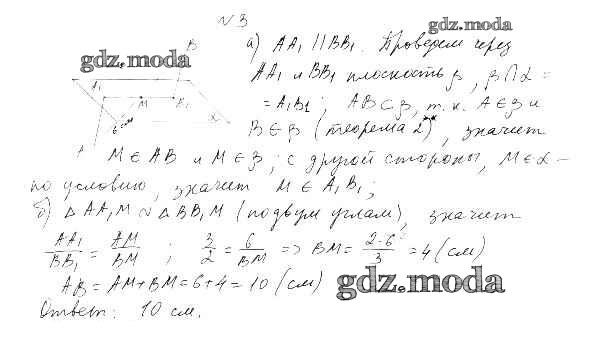 №3
gdz.moda
gdz.moda
B
A₁
M
B₁
6 см
α
A
а) AA₁ || BB₁. Проведем через
AA₁ и BB₁ плоскость β, β ∩ α =
= A₁B₁; AB ⊂ β, т. к. A ∈ β и
B ∈ β (теорема 2), значит
M ∈ AB и M ∈ β; с другой стороны, M ∈ α -
по условию, значит M ∈ A₁B₁;
б) △ AA₁M ~ △ BB₁M (по двум углам), значит
AA₁/BB₁ = AM/BM ; 3/2 = 6/BM => BM = 2·6/3 = 4 (см)
AB = AM + BM = 6 + 4 = 10 (см)
gdz.moda
Ответ: 10 см.